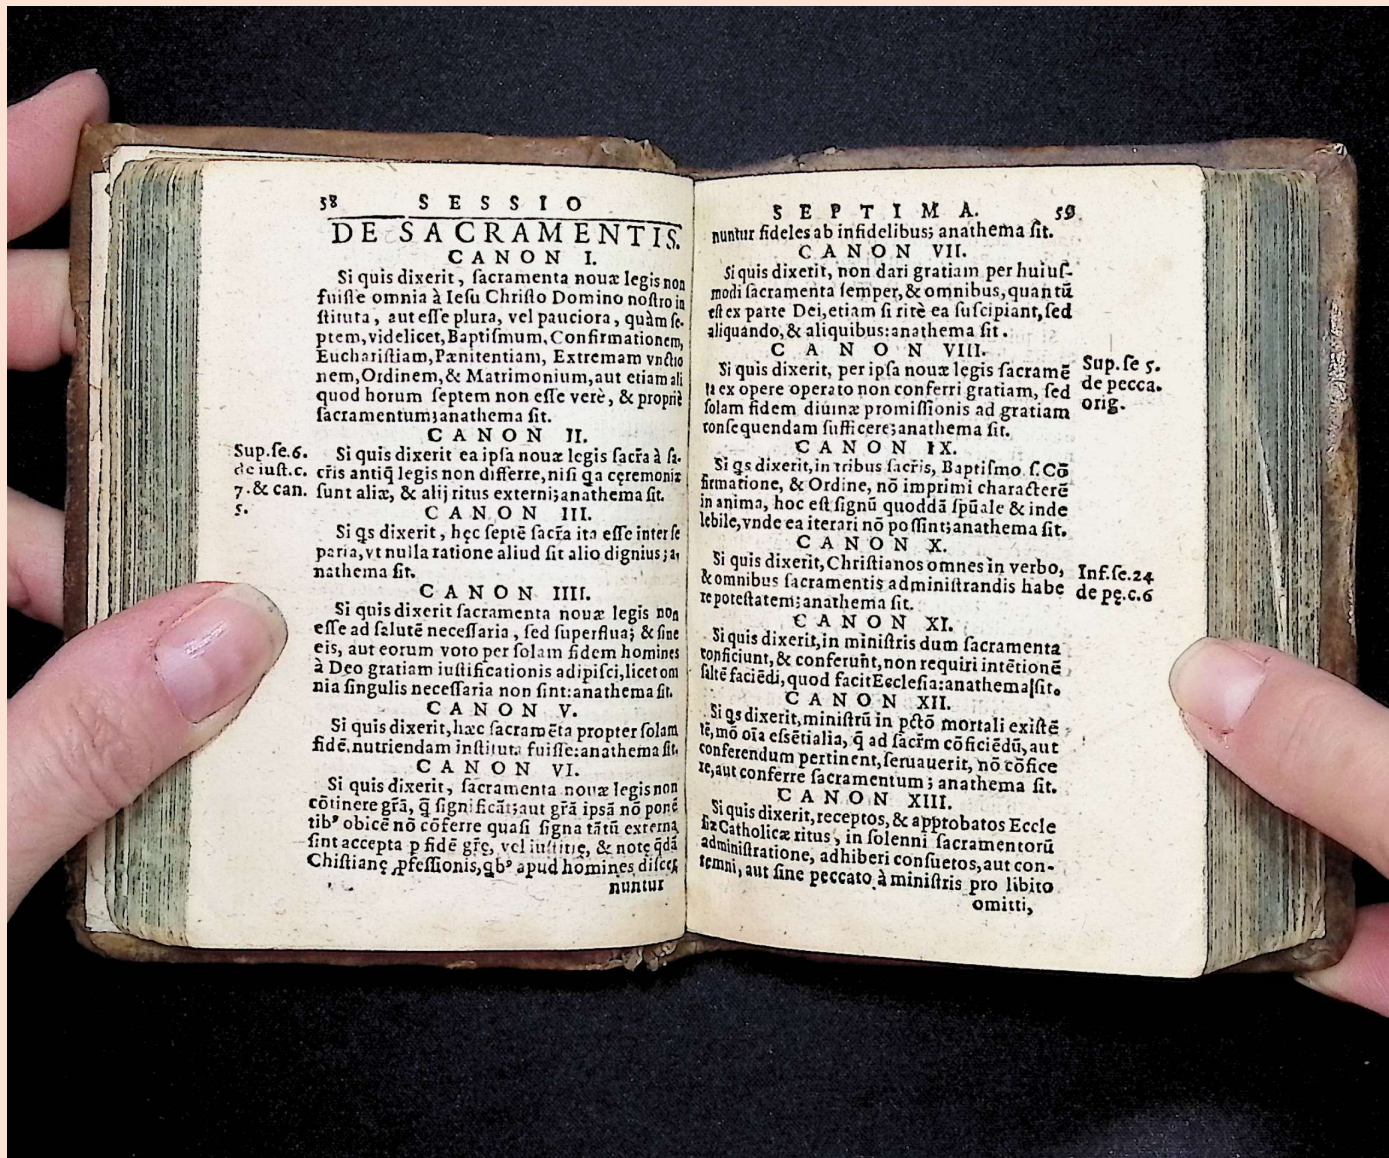 58 SESSIO
DE SACRAMENTIS.
CANON I.
Si quis dixerit, ſacramenta nouæ legis non
fuiſſe omnia à Ieſu Chriſto Domino noſtro in
ſtituta, aut eſſe plura, vel pauciora, quàm ſe-
ptem, videlicet, Baptiſmum, Confirmationem,
Euchariſtiam, Pænitentiam, Extremam vnctio
nem, Ordinem, & Matrimonium, aut etiam ali
quod horum ſeptem non eſſe verè, & propriè
ſacramentum; anathema ſit.
CANON II.
Sup.ſe.6.
de iuſt.c.
7.& can.
5.
Si quis dixerit ea ipſa nouæ legis ſacr̃a à ſa-
cr̃is antiq̃ legis non differre, niſi qa cęremoniæ
ſunt aliæ, & alij ritus externi; anathema ſit.
CANON III.
Si qs dixerit, hęc ſeptē ſacr̃a ita eſſe inter ſe
paria, vt nulla ratione aliud ſit alio dignius; a-
nathema ſit.
CANON IIII.
Si quis dixerit ſacramenta nouæ legis non
eſſe ad ſalutē neceſſaria, ſed ſuperflua; & ſine
eis, aut eorum voto per ſolam fidem homines
à Deo gratiam iuſtificationis adipiſci, licet om
nia ſingulis neceſſaria non ſint: anathema ſit.
CANON V.
Si quis dixerit, hæc ſacramēta propter ſolam
fidē, nutriendam inſtituta fuiſſe: anathema ſit.
CANON VI.
Si quis dixerit, ſacramenta nouæ legis non
cōtinere gr̃ā, q̃ ſignificāt; aut gr̃ā ipsā nō ponē
tibꝰ obicē nō cōferre quaſi ſigna tātū externa
ſint accepta p fidē gr̃ę, vel iuſtitię, & notę q̃dā
Chiſtianę ꝓfeſſionis, qbꝰ apud homines diſcer
nuntur
SEPTIMA. 59
nuntur fideles ab infidelibus; anathema ſit.
CANON VII.
Si quis dixerit, non dari gratiam per huiuſ-
modi ſacramenta ſemper, & omnibus, quantū
eſt ex parte Dei, etiam ſi ritè ea ſuſcipiant, ſed
aliquando, & aliquibus: anathema ſit.
CANON VIII.
Si quis dixerit, per ipſa nouæ legis ſacramē
ta ex opere operato non conferri gratiam, ſed
ſolam fidem diuinæ promiſſionis ad gratiam
conſequendam ſufficere; anathema ſit.
Sup.ſe 5.
de pecca.
orig.
CANON IX.
Si qs dixerit, in tribus ſacr̃is, Baptiſmo ſ. Cō
firmatione, & Ordine, nō imprimi characterē
in anima, hoc eſt ſignū quoddā ſpũale & inde
lebile, vnde ea iterari nō poſſint; anathema ſit.
CANON X.
Si quis dixerit, Chriſtianos omnes in verbo,
& omnibus ſacramentis adminiſtrandis habe
re poteſtatem; anathema ſit.
Inf.ſe.24
de pę.c.6
CANON XI.
Si quis dixerit, in miniſtris dum ſacramenta
conficiunt, & conferunt, non requiri intētionē
ſaltē faciēdi, quod facit Eccleſia: anathema ſit.
CANON XII.
Si qs dixerit, miniſtrū in pctō mortali exiſtē
tē, mō oĩa eſſētialia, q̃ ad ſacr̃m cōficiēdū, aut
conferendum pertinent, ſeruauerit, nō cōfice
re, aut conferre ſacramentum; anathema ſit.
CANON XIII.
Si quis dixerit, receptos, & approbatos Eccle
ſiæ Catholicæ ritus, in ſolenni ſacramentorū
adminiſtratione, adhiberi conſuetos, aut con-
temni, aut ſine peccato à miniſtris pro libito
omitti,